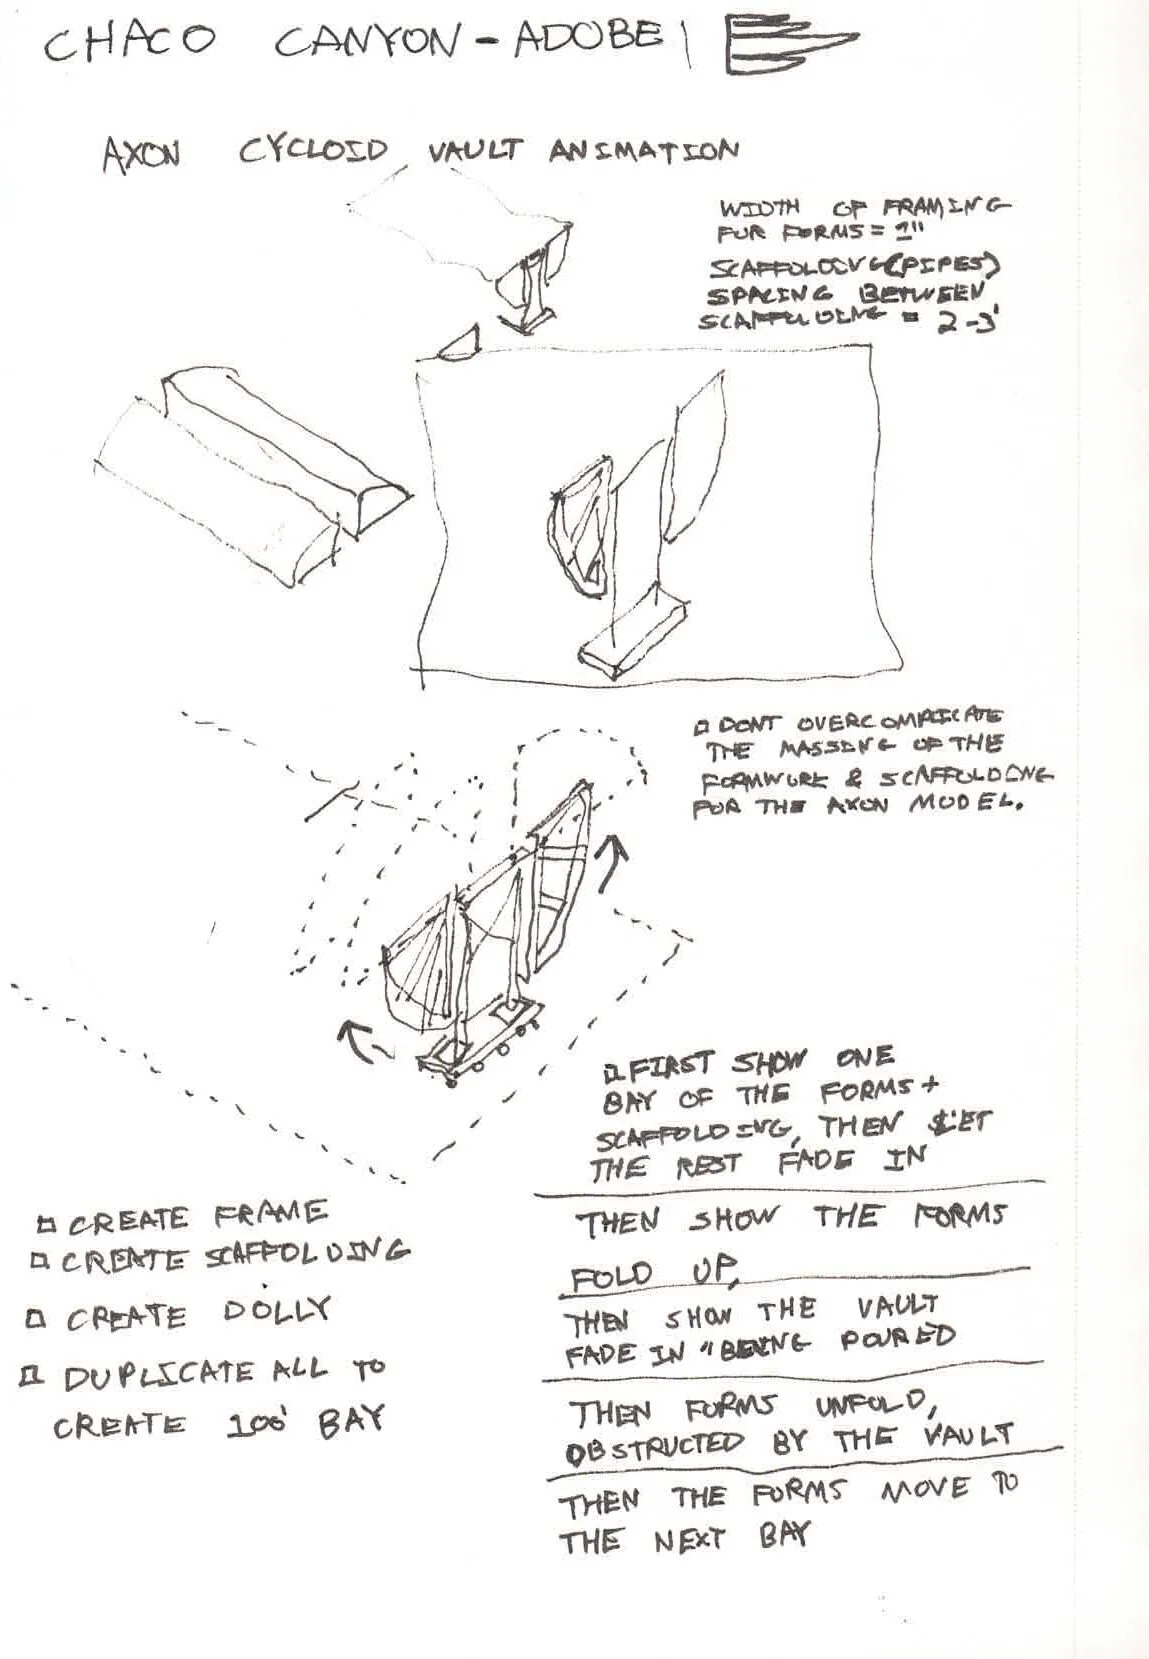 CHACO CANYON - ADOBE |
AXON CYCLOID VAULT ANIMATION
WIDTH OF FRAMING
FUR FORMS = 1"
SCAFFOLDING (PIPES)
SPACING BETWEEN
SCAFFOLDING = 2-3'
DONT OVERCOMPLICATE
THE MASSING OF THE
FORMWORK & SCAFFOLDING
FOR THE AXON MODEL.
FIRST SHOW ONE
BAY OF THE FORMS +
SCAFFOLDING, THEN LET
THE REST FADE IN
THEN SHOW THE FORMS
FOLD UP,
THEN SHOW THE VAULT
FADE IN "BEING POURED
THEN FORMS UNFOLD,
OBSTRUCTED BY THE VAULT
THEN THE FORMS MOVE TO
THE NEXT BAY
CREATE FRAME
CREATE SCAFFOLDING
CREATE DOLLY
DUPLICATE ALL TO
CREATE 100' BAY